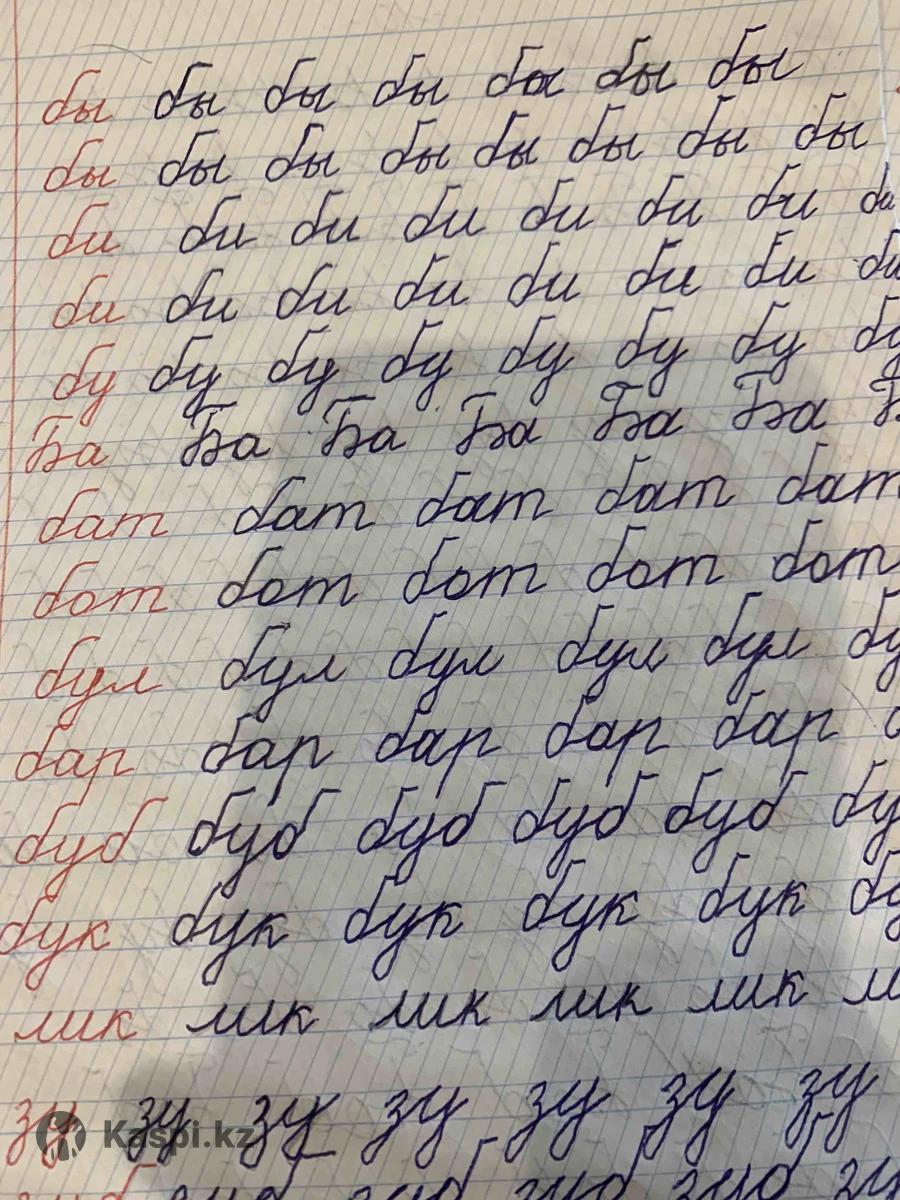 бы бы бы бы бы бы бы
бы бы бы бы бы бы бы бы
би би би би би би би би
би би би би би би би би
бу бу бу бу бу бу бу
Ба Ба Ба Ба Ба Ба
бат бат бат бат бат
бот бот бот бот бот
бул бул бул бул бул бу
бар бар бар бар бар
буб буб буб буб буб бу
бук бук бук бук бук
лик лик лик лик лик
зу зу зу зу зу зу зу
Kaspi.kz
зуб зуб зуб зуб зуб